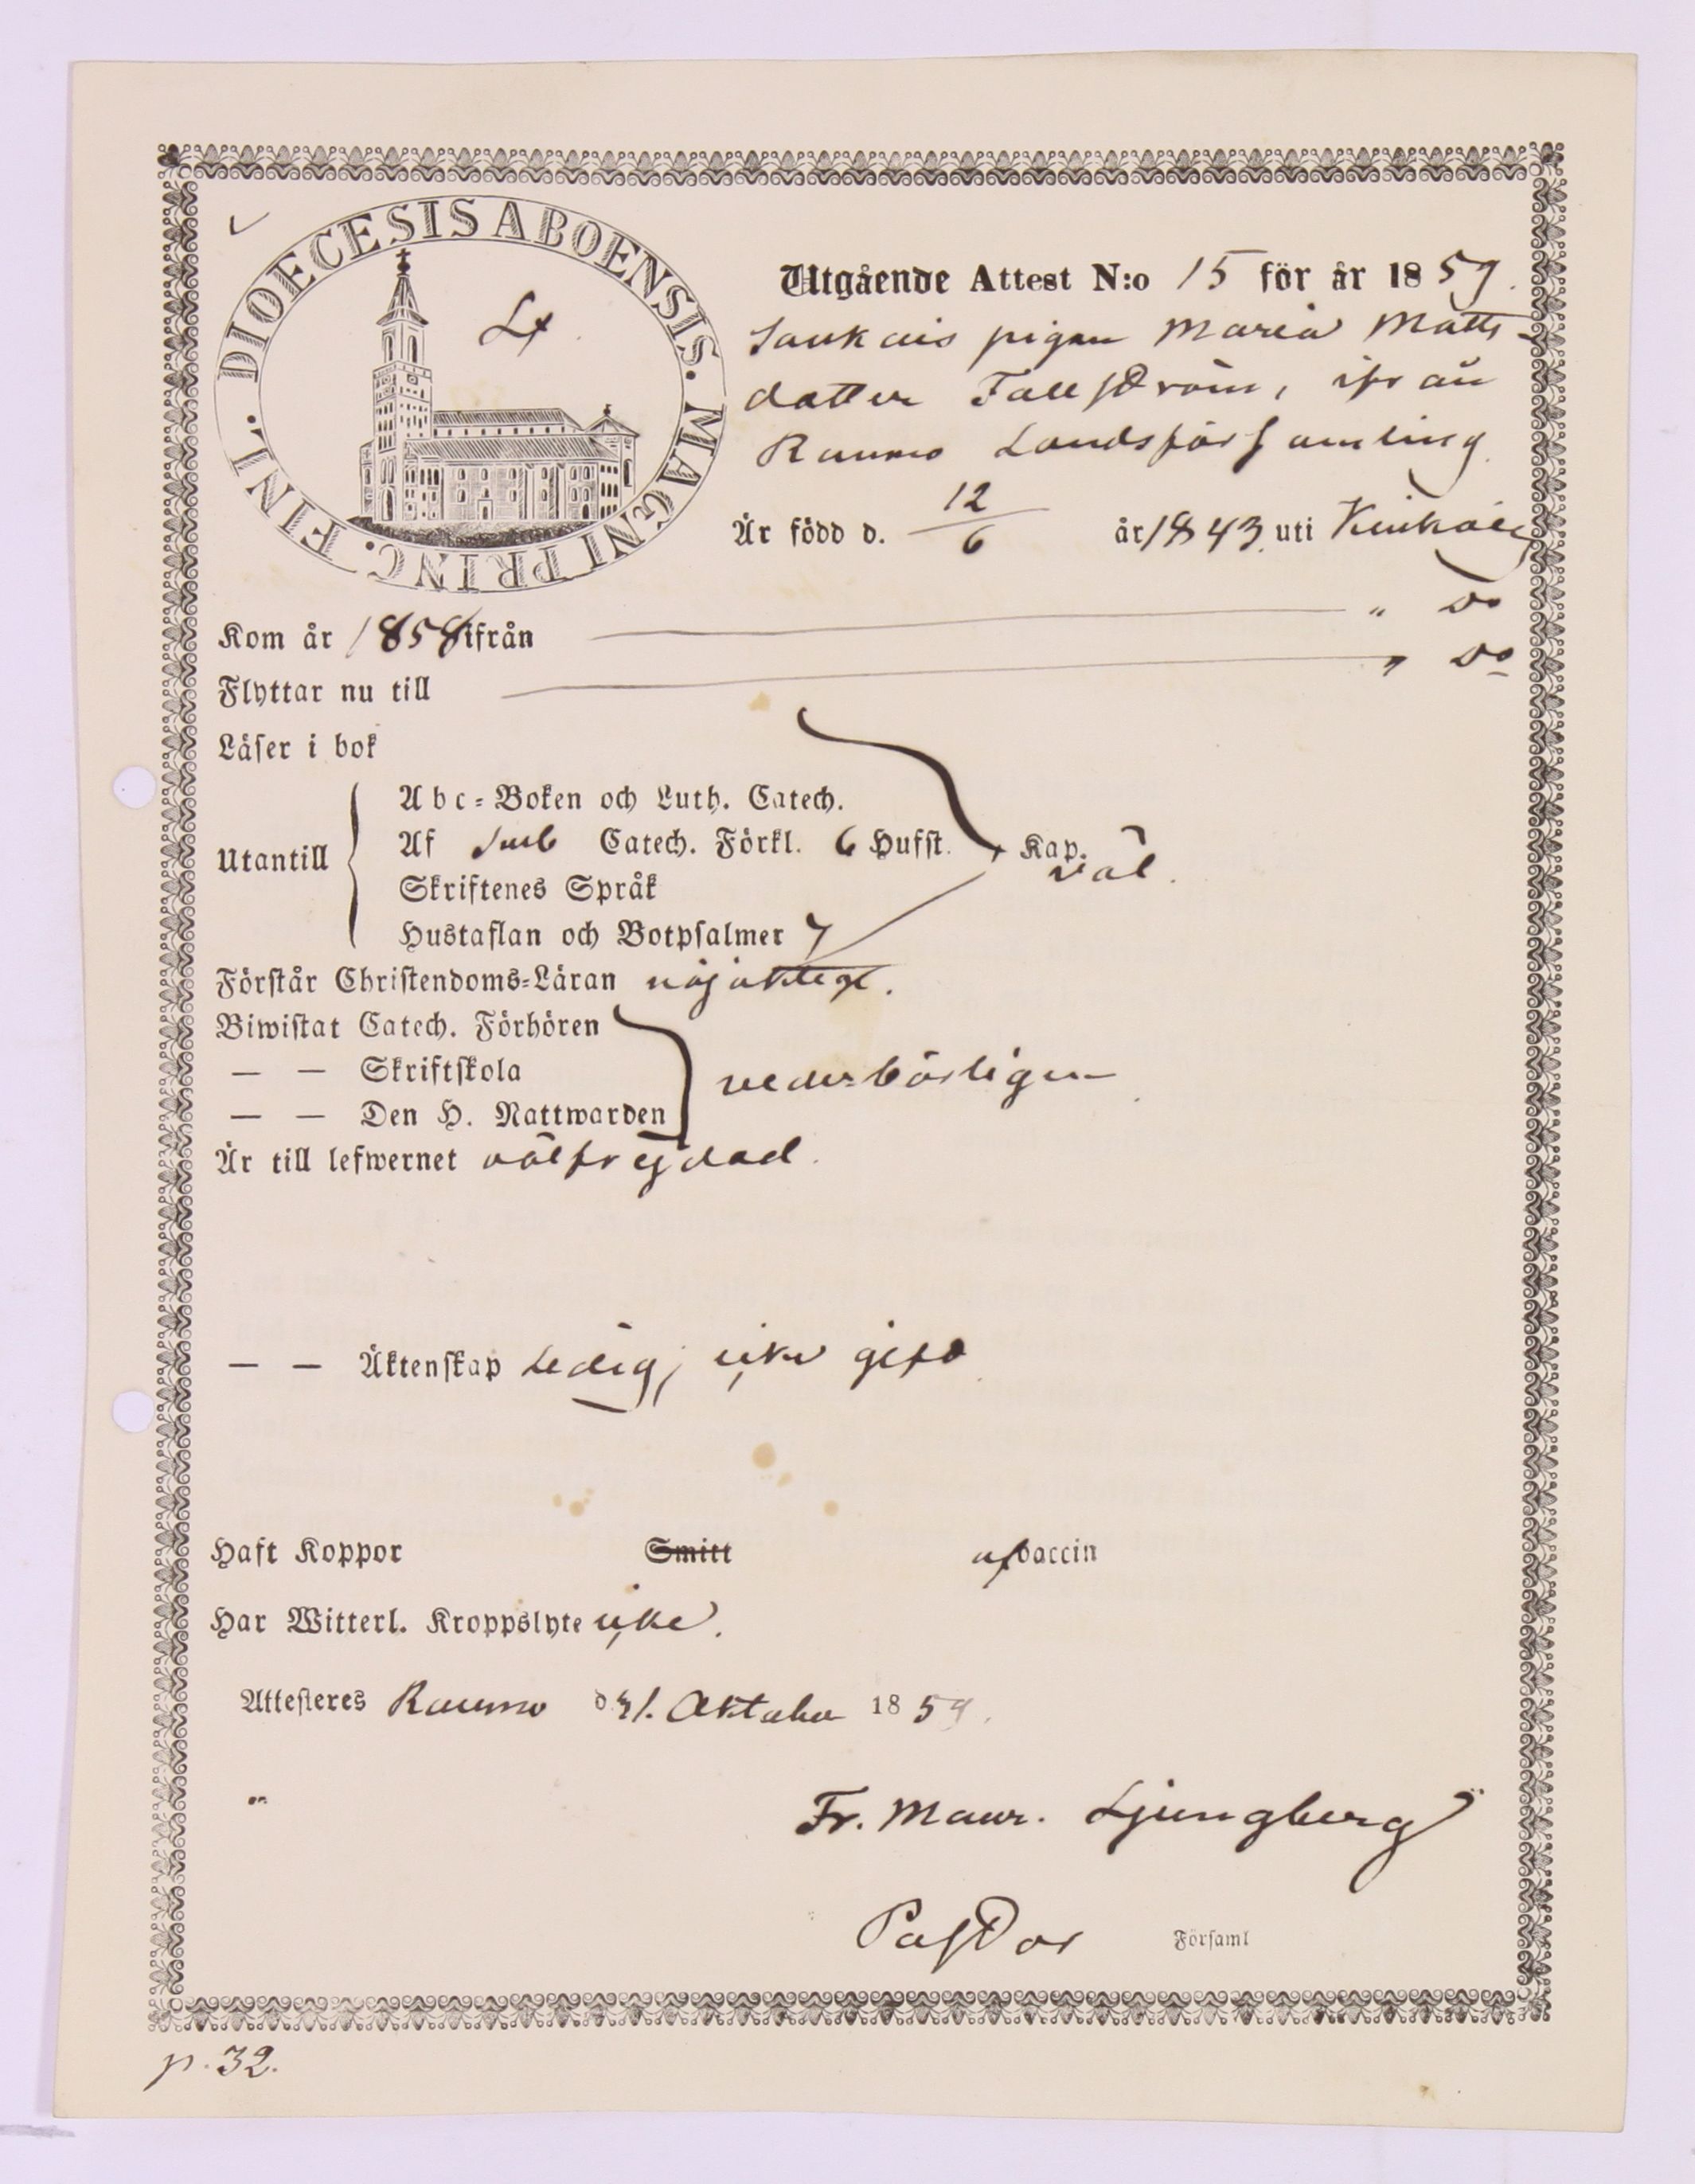 DIOECESIS ABOENSIS. MAGNI PRINC. FINL.
Utgående Attest N:o 15 för år 1859.
pigan Maria Matts-
dotter Fallström, ifrån
Raumo Landsförsamling.
Är född d. 12/6 år 1843. uti Kiukais
Kom år 1858 ifrån " Do
Flyttar nu till " Do
Läser i bok
Utantill
Abc-Boken och Luth. Catech.
Af Catech. Förkl. 6 Hufst. Kap.
väl.
Skriftenes Språk
Hustaflan och Botpsalmer 7
Förstår Christendoms-Läran nöjaktigt.
Biwistat Catech. Förhören
— — Skriftskola
vederbörligen
— — Den H. Nattwarden
Är till lefwernet välfrejdad.
— — Äktenskap Ledig, icke gift
Haft Koppor Smitt af vaccin
Har Witterl. Kroppslyte icke.
Attesteres Raumo d. 31. Oktober 1859.
Fr. Maur. Ljungberg
Pastor Församl
p. 32.